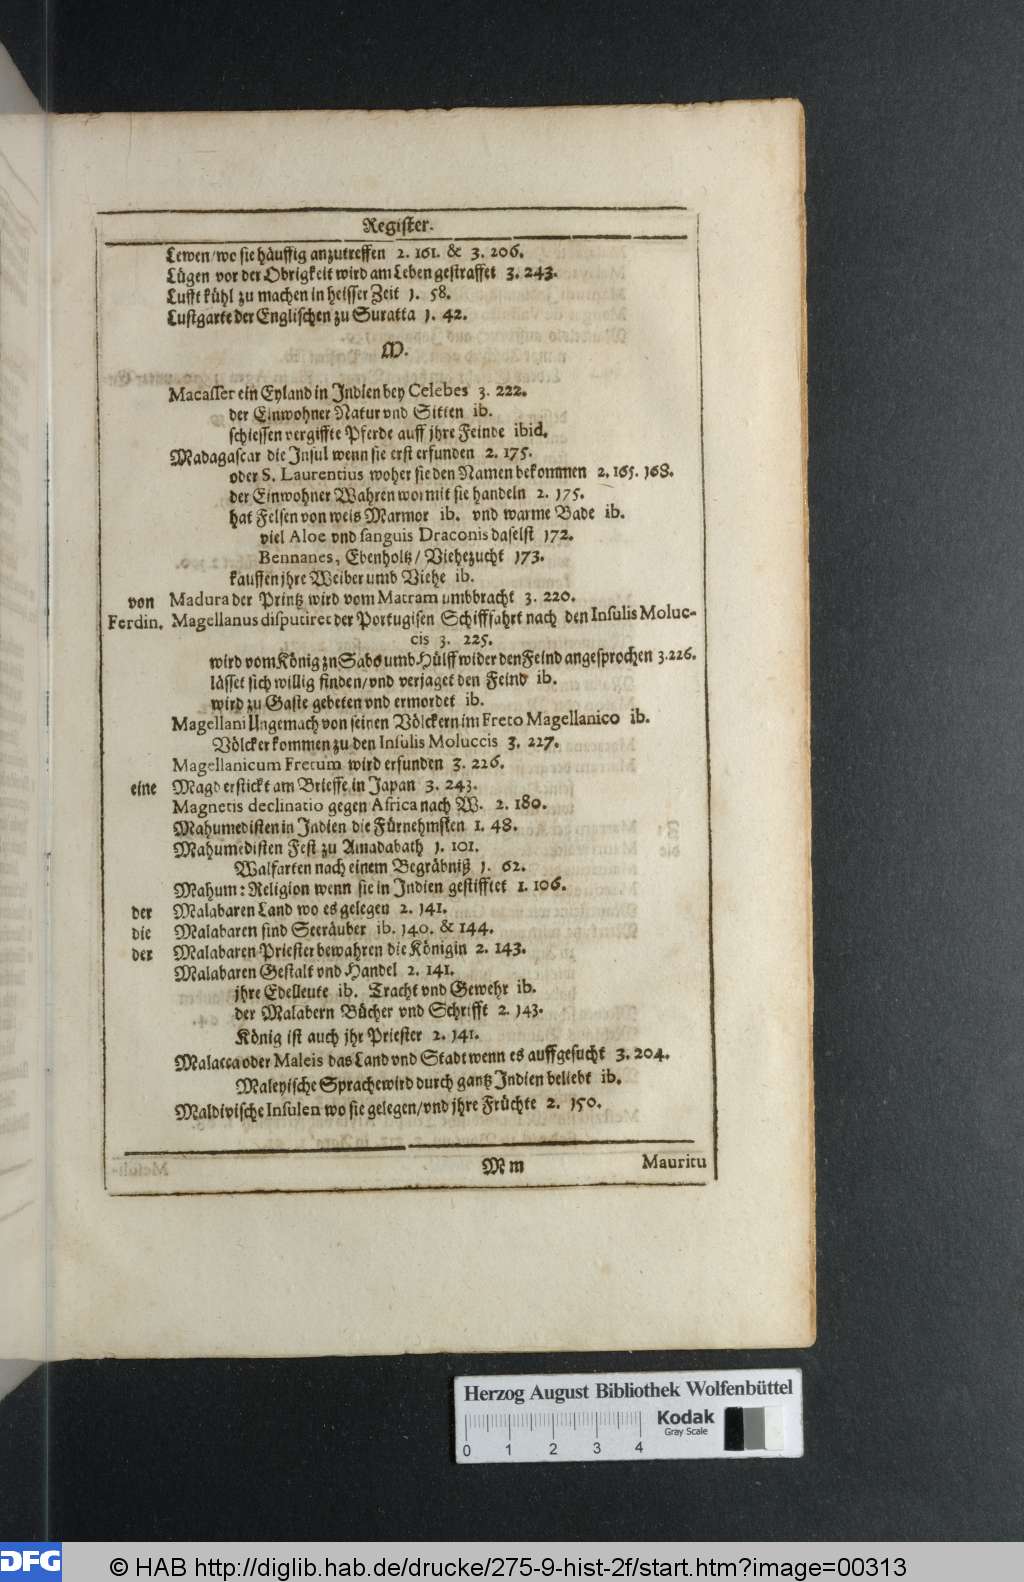 Register.
Lewen/wo sie häuffig anzutreffen 2. 161. & 3. 206.
Lügen vor der Obrigkeit wird am Leben gestraffet 3. 243.
Lufft kühl zu machen in heisser Zeit 1. 58.
Lustgarte der Englischen zu Suratta 1. 42.
M.
Macasser ein Eyland in Indien bey Celebes 3. 222.
der Einwohner Natur vnd Sitten ib.
schiessen vergiffte Pferde auff jhre Feinde ibid.
Madagascar die Insul wenn sie erst erfunden 2. 175.
oder S. Laurentius woher sie den Namen bekommen 2. 165. 168.
der Einwohner Wahren wormit sie handeln 2. 175.
hat Felsen von weis Marmor ib. vnd warme Bade ib.
viel Aloe vnd sanguis Draconis daselst 172.
Bennanes, Ebenholtz/ Viehezucht 173.
kauffen jhre Weiber umb Viehe ib.
von Madura der Printz wird vom Matram umbbracht 3. 220.
Ferdin. Magellanus disputiret der Portugisen Schifffahrt nach den Insulis Moluc-
cis 3. 225.
wird vom König zn Sabo umb Hülff wider den Feind angesprochen 3.226.
lässet sich willig finden/vnd verjaget den Feind ib.
wird zu Gaste gebeten vnd ermordet ib.
Magellani Ungemach von seinen Völckern im Freto Magellanico ib.
Völcker kommen zu den Insulis Moluccis 3. 227.
Magellanicum Fretum wird erfunden 3. 226.
eine Magd erstickt am Brieffe in Japan 3. 243.
Magnetis declinatio gegen Africa nach W. 2. 180.
Mahumedisten in Indien die Fürnehmsten 1. 48.
Mahumedisten Fest zu Amadabath 1. 101.
Walfarten nach einem Begräbniß 1. 62.
Mahum: Religion wenn sie in Indien gestifftet 1. 106.
der Malabaren Land wo es gelegen 2. 141.
die Malabaren sind Seeräuber ib. 140. & 144.
der Malabaren Priester bewahren die Königin 2. 143.
Malabaren Gestalt vnd Handel 2. 141.
jhre Edelleute ib. Tracht vnd Gewehr ib.
der Malabern Bücher vnd Schrifft 2. 143.
König ist auch jhr Priester 2. 141.
Malacca oder Maleis das Land vnd Stadt wenn es auffgesucht 3. 204.
Maleyische Sprache wird durch gantz Indien beliebt ib.
Maldivische Insulen wo sie gelegen/vnd jhre Früchte 2. 150.
M m Mauritu
Herzog August Bibliothek Wolfenbüttel
Kodak
Gray Scale
0 1 2 3 4
DFG © HAB http://diglib.hab.de/drucke/275-9-hist-2f/start.htm?image=00313